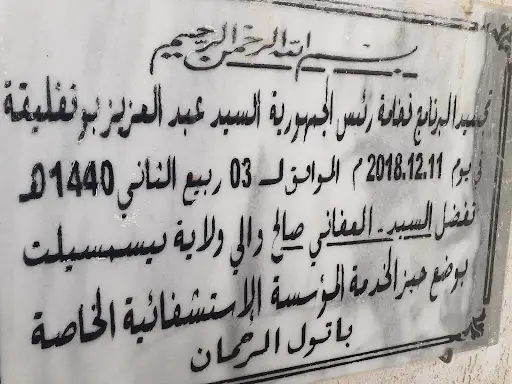 بسم الله الرحمن الرحيم
تجسيد البرنامج فخامة رئيس الجمهورية السيد عبد العزيز بوتفليقة
في يوم 2018.12.11 م الموافق لـ 03 ربيع الثاني 1440هـ
تفضل السيد - العفاني صالح والي ولاية تيسمسيلت
بوضع حيز الخدمة المؤسسة الإستشفائية الخاصة
باتول الرحمان